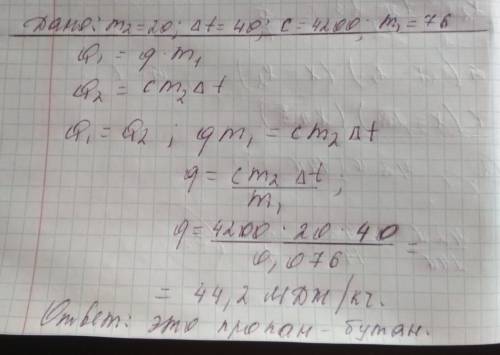 Дано: m₂=20; Δt=40; c=4200; m₁=76
Q₁ = q·m₁
Q₂ = cm₂Δt
Q₁ = Q₂ ; qm₁ = cm₂Δt
q = cm₂Δt / m₁ ;
q = 4200·20·40 / 0,076 =
= 44,2 МДж/кг.
Ответ: это пропан-бутан.